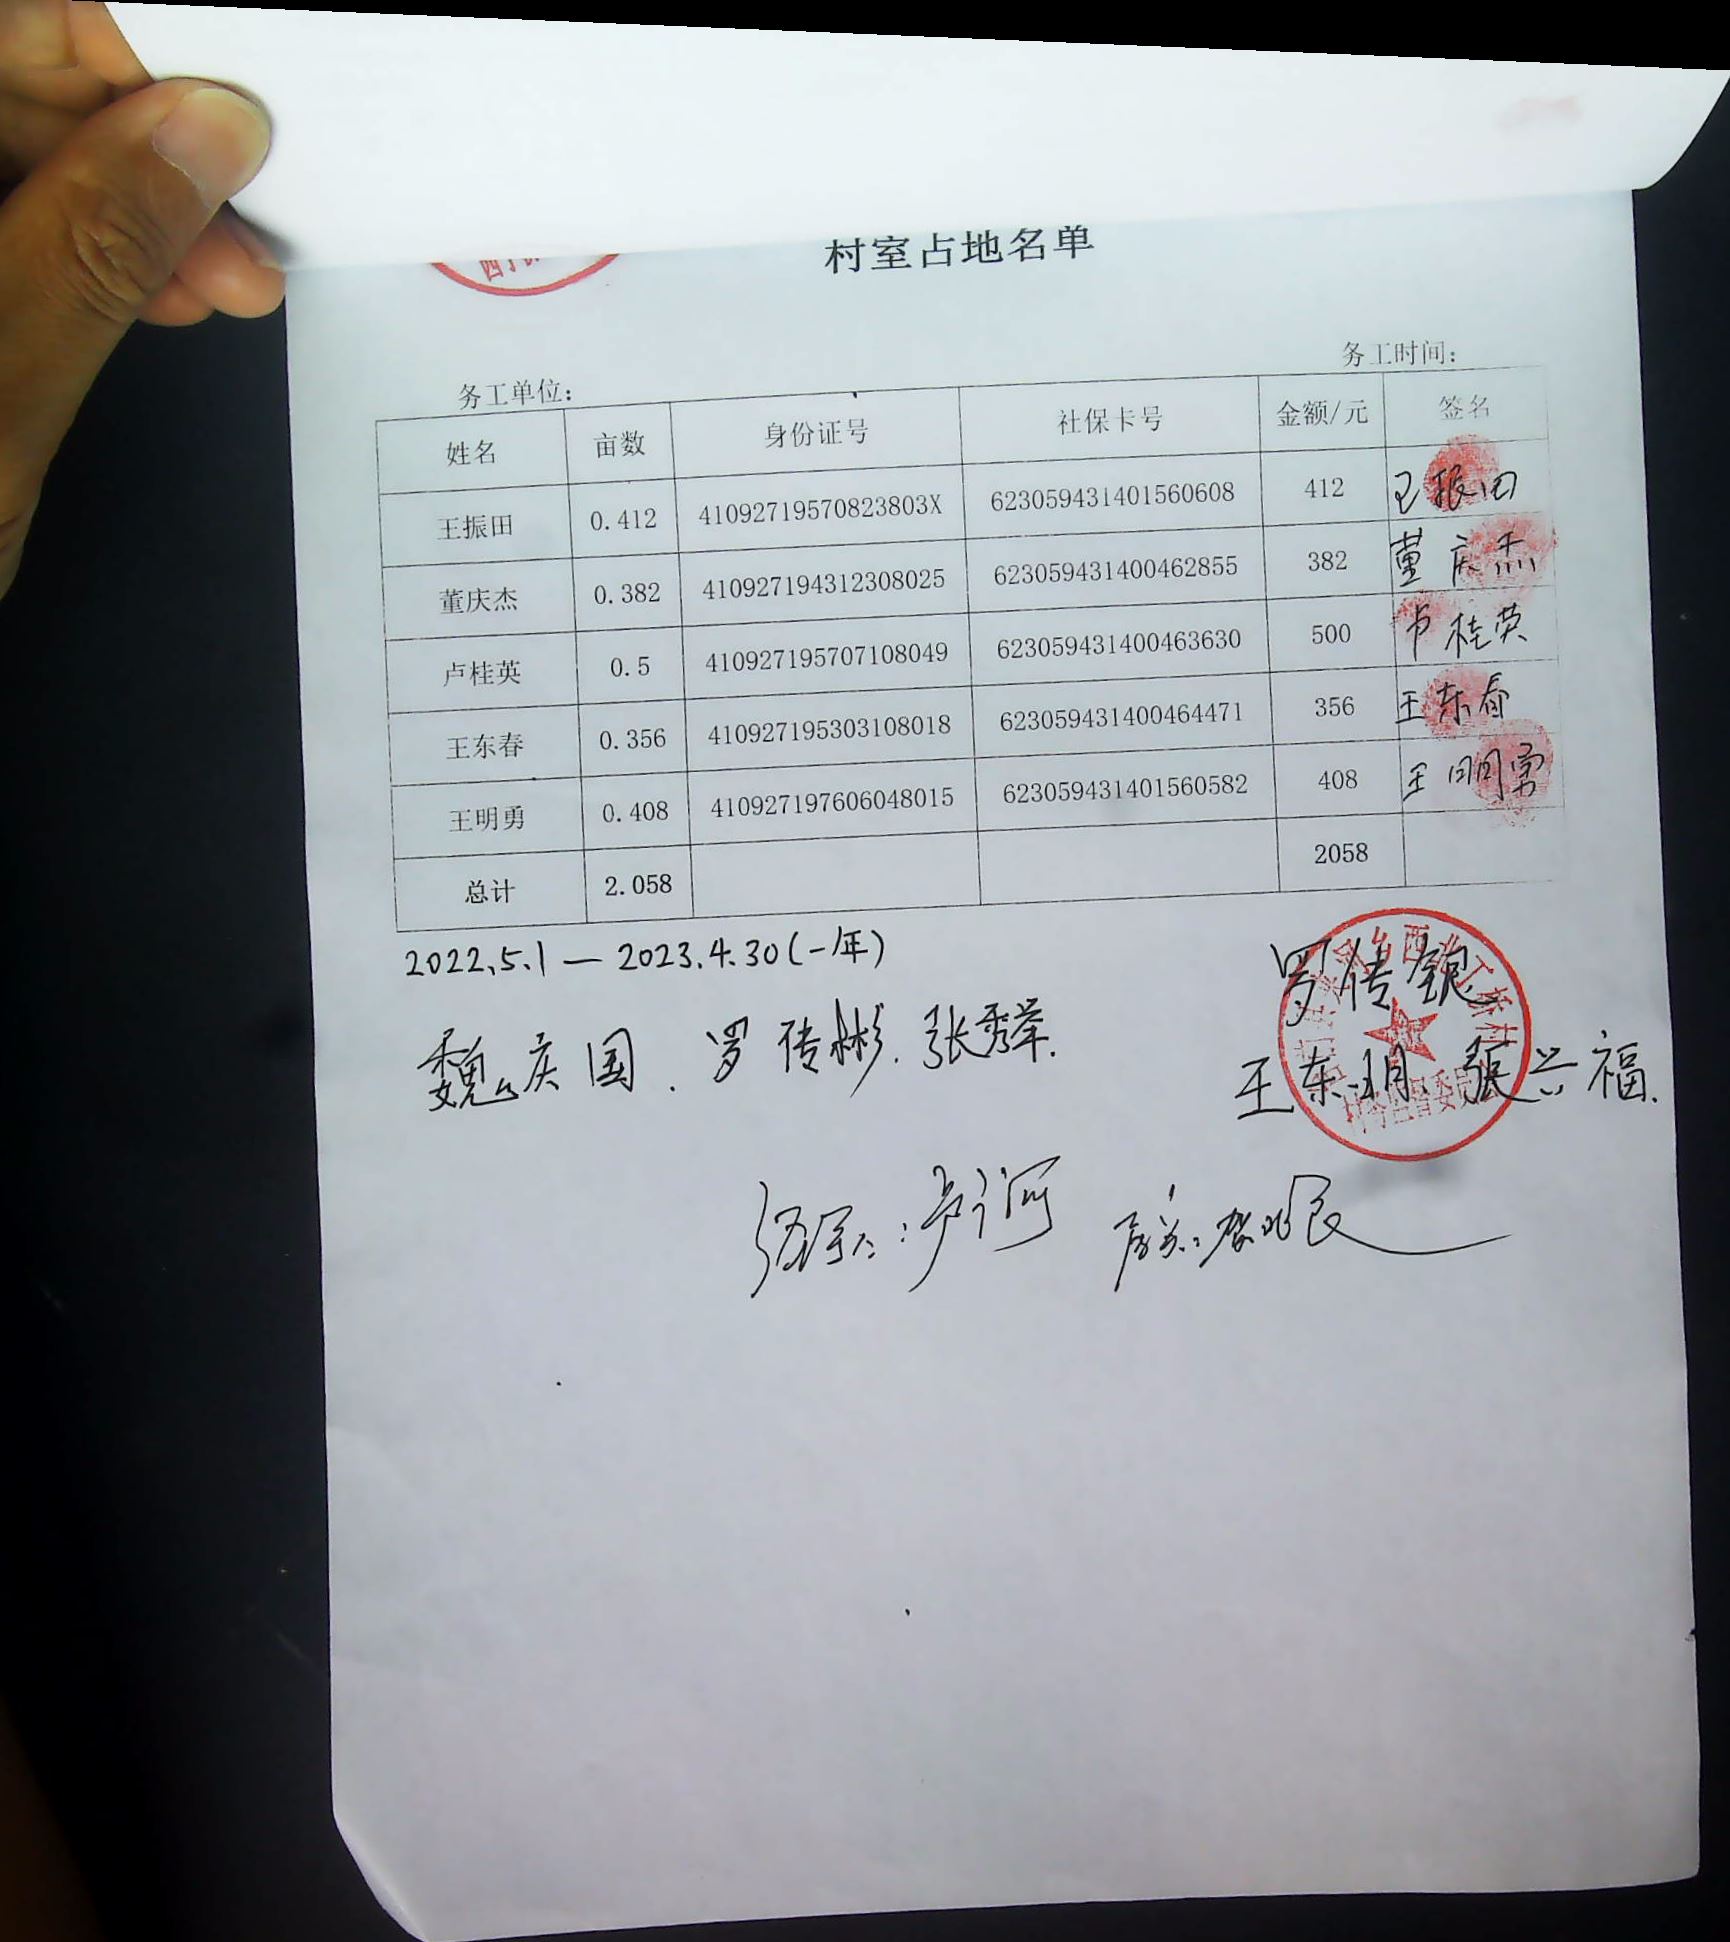 村室占地名单
务工单位：
务工时间：
姓名 亩数 身份证号 社保卡号 金额/元 签名
王振田 0.412 41092719570823803X 623059431401560608 412 王振田
董庆杰 0.382 410927194312308025 623059431400462855 382 董庆杰
卢桂英 0.5 410927195707108049 623059431400463630 500 卢桂英
王东春 0.356 410927195303108018 623059431400464471 356 王东春
王明勇 0.408 410927197606048015 623059431401560582 408 王明勇
总计 2.058 2058
2022.5.1—2023.4.30(一年)
罗传银
魏庆国.罗传彬.张秀举.
王东明.张兴福.